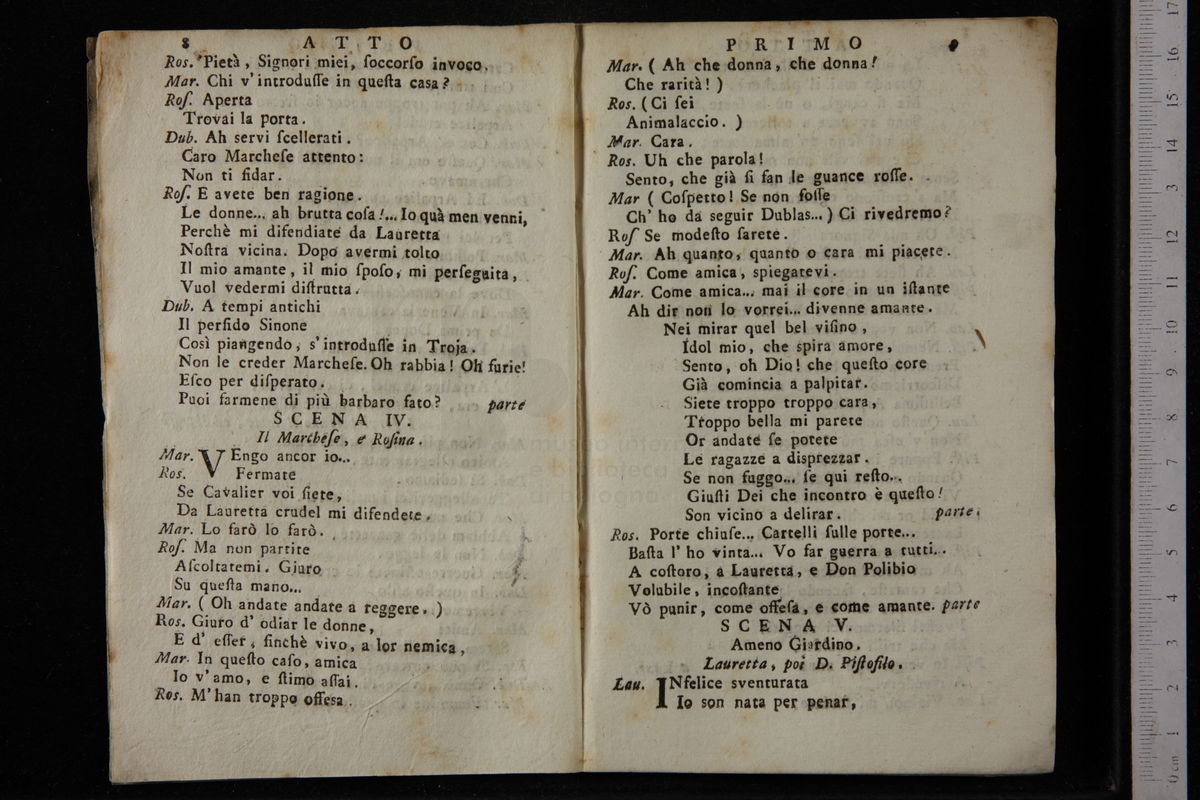 8 ATTO
Ros. Pietà, Signori miei, ſoccorſo invoco.
Mar. Chi v'introduſſe in queſta caſa?
Roſ. Aperta
Trovai la porta.
Dub. Ah servi ſcellerati.
Caro Marcheſe attento:
Non ti fidar.
Roſ. E avete ben ragione.
Le donne... ah brutta coſa!... Io quà men venni,
Perchè mi difendiate da Lauretta
Noſtra vicina. Dopo avermi tolto
Il mio amante, il mio ſpoſo, mi perſeguita,
Vuol vedermi diſtrutta.
Dub. A tempi antichi
Il perfido Sinone
Così piangendo, s'introduſſe in Troja.
Non le creder Marcheſe. Oh rabbia! Oh furie!
Eſco per diſperato.
Puoi farmene di più barbaro fato? parte
SCENA IV.
Il Marcheſe, e Roſina.
Mar. VEngo ancor io...
Ros. Fermate
Se Cavalier voi ſiete,
Da Lauretta crudel mi difendete.
Mar. Lo farò lo farò.
Roſ. Ma non partite
Aſcoltatemi. Giuro
Su queſta mano...
Mar. (Oh andate andate a reggere.)
Ros. Giuro d'odiar le donne,
E d'eſſer, finchè vivo, a lor nemica,
Mar. In queſto caſo, amica
Io v'amo, e ſtimo aſſai.
Ros. M'han troppo offesa.
PRIMO 9
Mar. (Ah che donna, che donna!
Che rarità!)
Ros. (Ci ſei
Animalaccio.)
Mar. Cara.
Ros. Uh che parola!
Sento, che già ſi fan le guance roſſe.
Mar (Coſpetto! Se non foſſe
Ch'ho da seguir Dublas...) Ci rivedremo?
Roſ Se modeſto ſarete.
Mar. Ah quanto, quanto o cara mi piacete.
Roſ. Come amica, spiegatevi.
Mar. Come amica... mai il core in un iſtante
Ah dir non lo vorrei... divenne amante.
Nei mirar quel bel viſino,
Idol mio, che spira amore,
Sento, oh Dio! che queſto core
Già comincia a palpitar.
Siete troppo troppo cara,
Troppo bella mi parete
Or andate ſe potete
Le ragazze a disprezzar.
Se non fuggo... ſe qui reſto...
Giuſti Dei che incontro è queſto!
Son vicino a delirar. parte.
Ros. Porte chiuſe... Cartelli ſulle porte...
Baſta l'ho vinta... Vo far guerra a tutti...
A coſtoro, a Lauretta, e Don Polibio
Volubile, incoſtante
Vò punir, come offeſa, e come amante. parte
SCENA V.
Ameno Giardino.
Lauretta, poi D. Piſtofilo.
Lau. INfelice sventurata
Io son nata per penar,